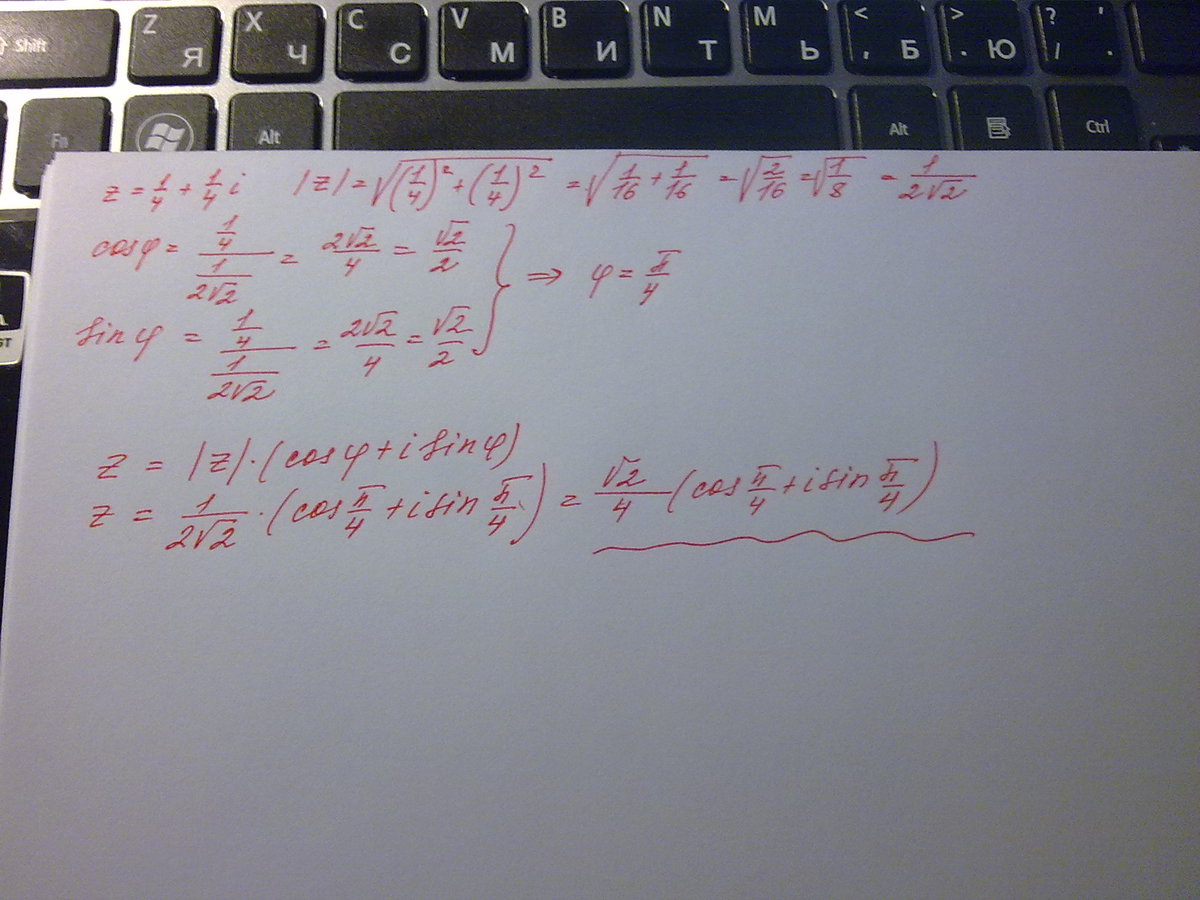 Shift Z Я X Ч C С V М B И N Т M Ь < , Б > . Ю ? / ' .
Fn Alt Alt Ctrl
z = 1/4 + 1/4 i |z| = √((1/4)² + (1/4)²) = √(1/16 + 1/16) = √(2/16) = √(1/8) = 1/(2√2)
cosφ = (1/4)/(1/(2√2)) = 2√2/4 = √2/2
} ⇒ φ = π/4
sinφ = (1/4)/(1/(2√2)) = 2√2/4 = √2/2
z = |z|·(cosφ + i sinφ)
z = 1/(2√2)·(cos π/4 + i sin π/4) = √2/4 (cos π/4 + i sin π/4)